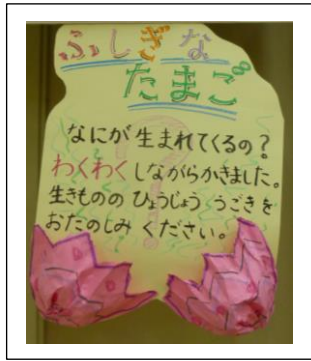 ふしぎな
たまご
なにが生まれてくるの？
わくわくしながらかきました。
生きもののひょうじょう うごきを
おたのしみ ください。